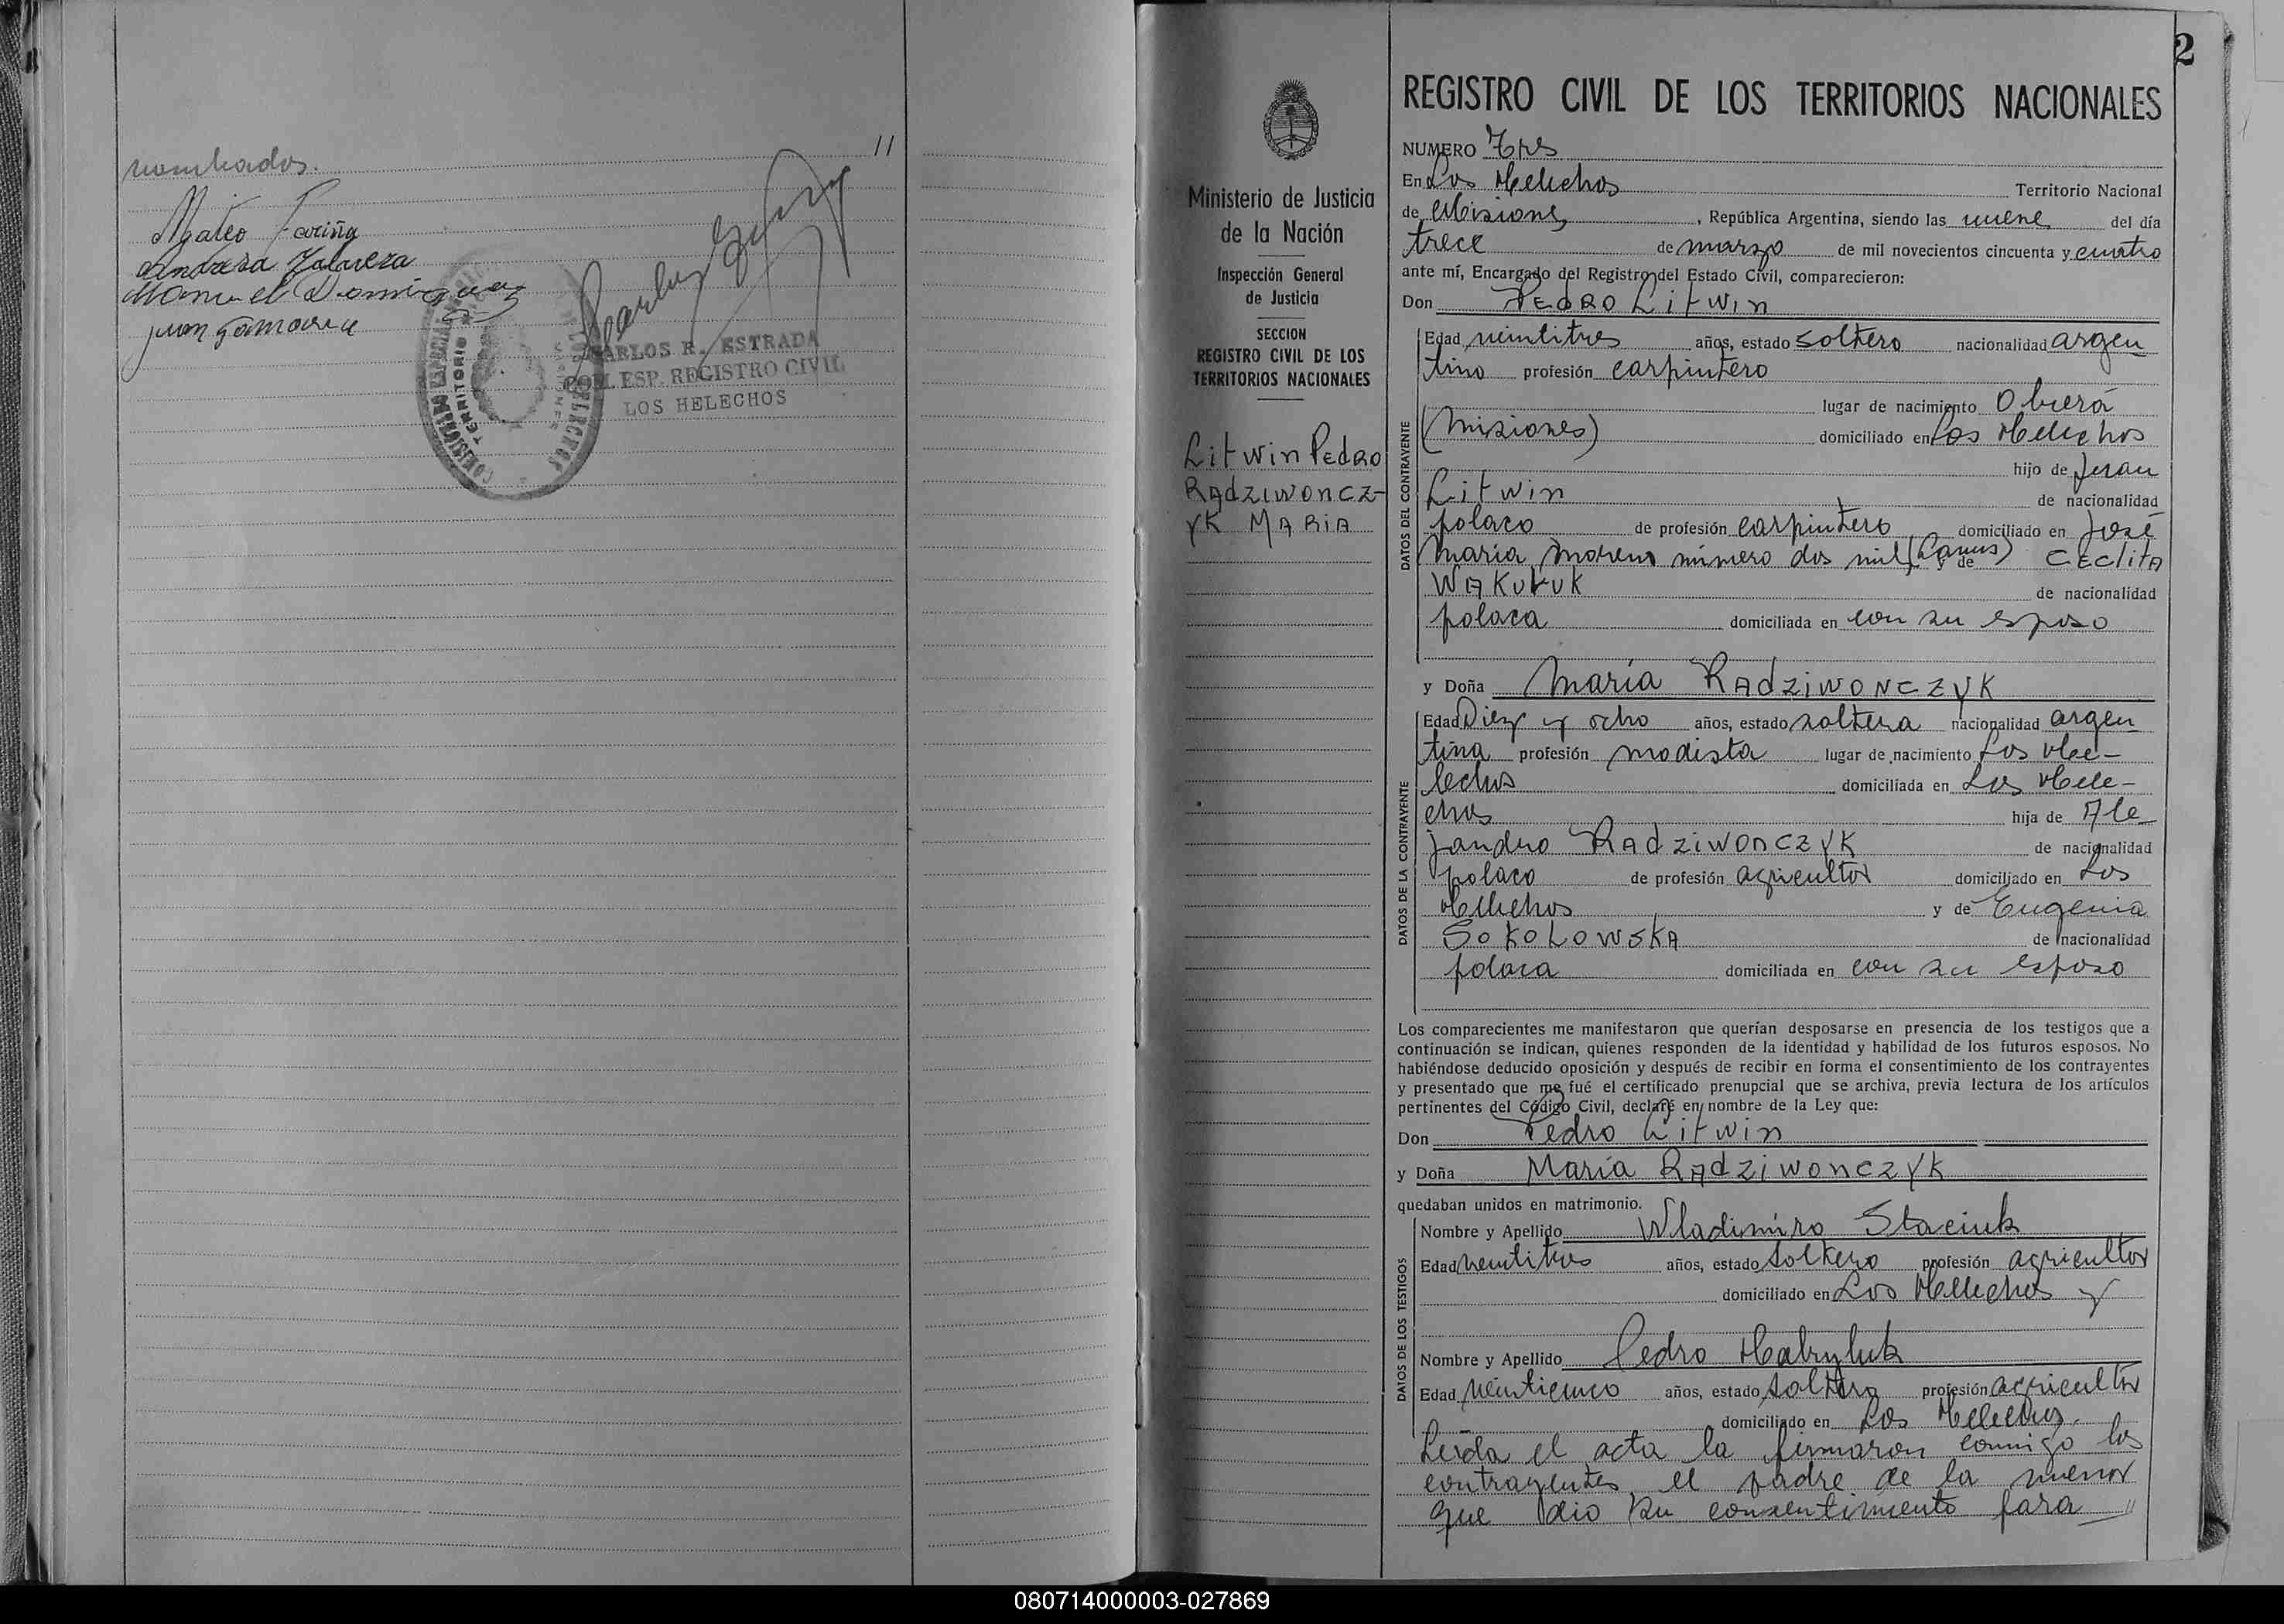 11
nombrados.
Mateo Fariña
Manuel Dominguez
Juan Gamarra
CARLOS R. ESTRADA
COM. ESP. REGISTRO CIVIL
LOS HELECHOS
2
Ministerio de Justicia
de la Nación
Inspección General
de Justicia
SECCION
REGISTRO CIVIL DE LOS
TERRITORIOS NACIONALES
Litwin Pedro
Radziwoncz-
yk MARIA
REGISTRO CIVIL DE LOS TERRITORIOS NACIONALES
NUMERO Tres
En Los Helechos Territorio Nacional
de Misiones, República Argentina, siendo las nueve del día
trece de marzo de mil novecientos cincuenta y cuatro
ante mí, Encargado del Registro del Estado Civil, comparecieron:
Don PEDRO Litwin
DATOS DEL CONTRAYENTE
Edad veintitres años, estado soltero nacionalidad argen
tino profesión carpintero
lugar de nacimiento Oberá
(Misiones) domiciliado en Los Helechos
hijo de Juan
Litwin de nacionalidad
polaco de profesión carpintero domiciliado en José
María Moreno número dos mil (Lanus) y de CEclitA
WAKULUK de nacionalidad
polaca domiciliada en con su esposo
y Doña María RAdziwONCZYK
DATOS DE LA CONTRAYENTE
Edad Diez y ocho años, estado soltera nacionalidad argen
tina profesión modista lugar de nacimiento Los He-
lechos domiciliada en Los Hele-
chos hija de Ale
jandro RAdziwONCZYK de nacionalidad
polaco de profesión agricultor domiciliado en Los
Helechos y de Eugenia
SOKOLOWSKA de nacionalidad
polaca domiciliada en con su esposo
Los comparecientes me manifestaron que querían desposarse en presencia de los testigos que a
continuación se indican, quienes responden de la identidad y habilidad de los futuros esposos. No
habiéndose deducido oposición y después de recibir en forma el consentimiento de los contrayentes
y presentado que me fué el certificado prenupcial que se archiva, previa lectura de los artículos
pertinentes del Código Civil, declaré en nombre de la Ley que:
Don Pedro Litwin
y Doña María RAdziwonczyk
quedaban unidos en matrimonio.
DATOS DE LOS TESTIGOS
Nombre y Apellido Wladimiro Staciuk
Edad veintitres años, estado soltero profesión agricultor
domiciliado en Los Helechos y
Nombre y Apellido Pedro Habryluk
Edad veinticinco años, estado soltero profesión agricultor
domiciliado en Los Helechos.
Leída el acta la firmaron conmigo los
contrayentes, el padre de la menor
que dio su consentimiento para //
080714000003-027869